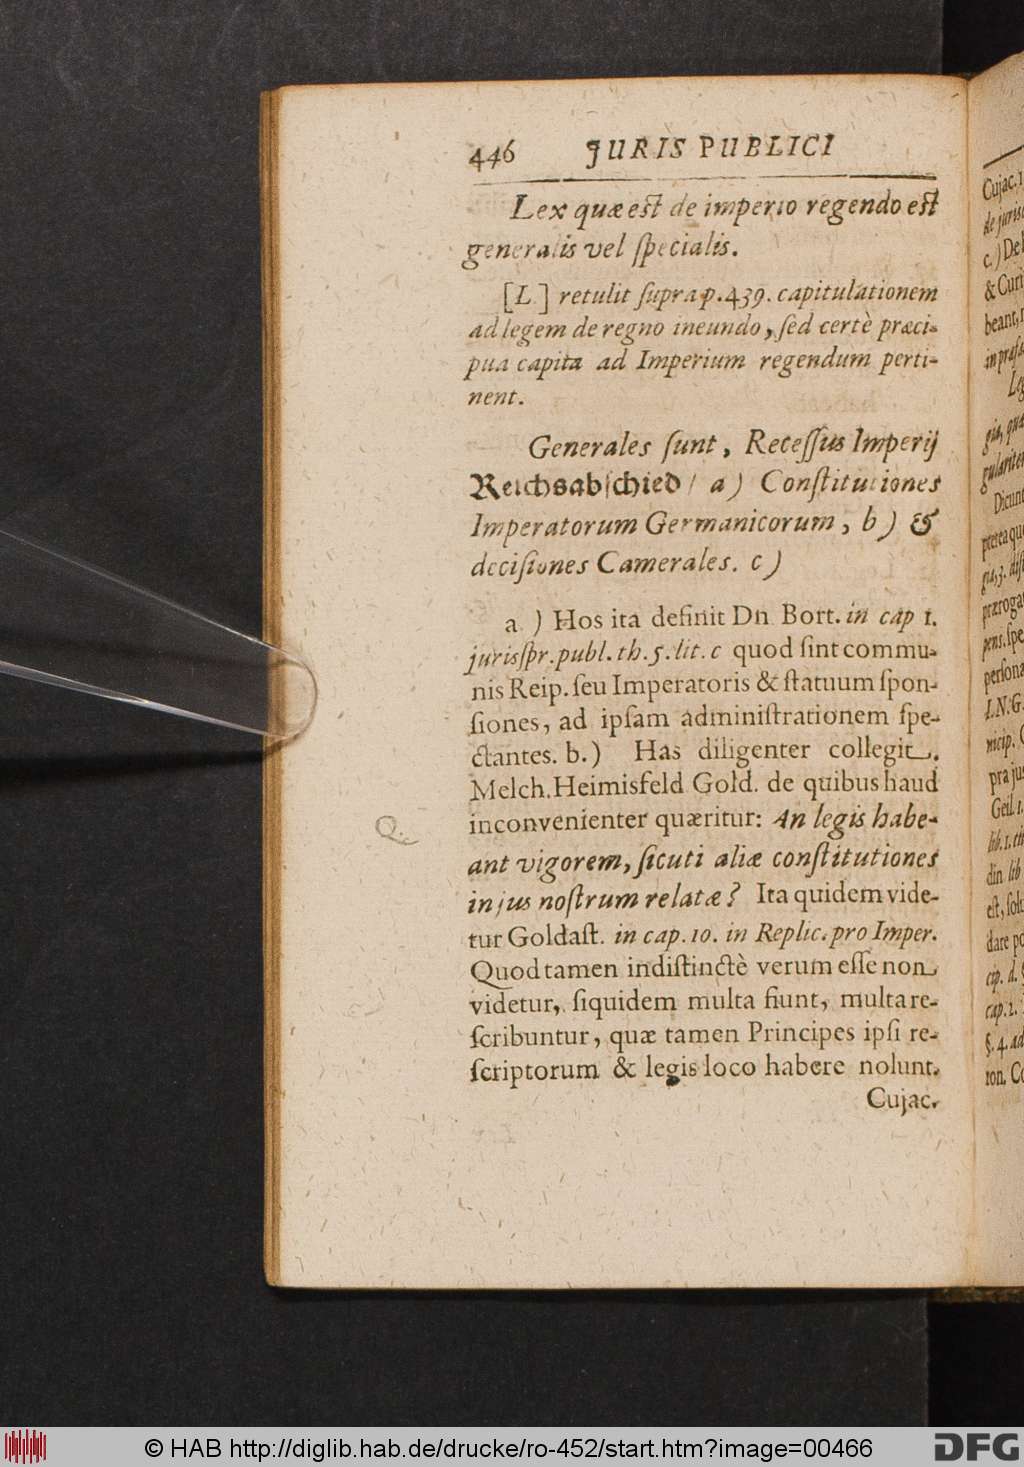 446 JURIS PUBLICI
Lex quæ eſt de imperio regendo eſt
generalis vel ſpecialis.
[L.] retulit ſupra p. 439. capitulationem
ad legem de regno ineundo, ſed certè præci-
pua capita ad Imperium regendum perti-
nent.
Generales ſunt, Receſſus Imperij
Reichsabſchied / a) Conſtitutiones
Imperatorum Germanicorum, b) &
deciſiones Camerales. c)
a.) Hos ita definit Dn. Bort. in cap 1.
juriſpr. publ. th. 5. lit. c quod ſint commu-
nis Reip. ſeu Imperatoris & ſtatuum ſpon-
ſiones, ad ipſam adminiſtrationem ſpe-
ctantes. b.) Has diligenter collegit.
Melch. Heimisfeld Gold. de quibus haud
Q.
inconvenienter quæritur: An legis habe-
ant vigorem, ſicuti aliæ conſtitutiones
in jus noſtrum relatæ? Ita quidem vide-
tur Goldaſt. in cap. 10. in Replic. pro Imper.
Quod tamen indiſtinctè verum eſſe non
videtur, ſiquidem multa fiunt, multa re-
ſcribuntur, quæ tamen Principes ipſi re-
ſcriptorum & legis loco habere nolunt.
Cujac.
Cujac. 1
c.) De
& Curi
beant,
Leg
gia, qua
gulariter
Dicunt
prærogat
penſ. ſpe
perſona
I. N. G.
nicip. C
pra jus
Geil. 1.
lib. 1. th
din lib
eſt, ſolu
dare po
cip. d. §
cap. 2.
§. 4. ad
ron. Co
© HAB http://diglib.hab.de/drucke/ro-452/start.htm?image=00466
DFG